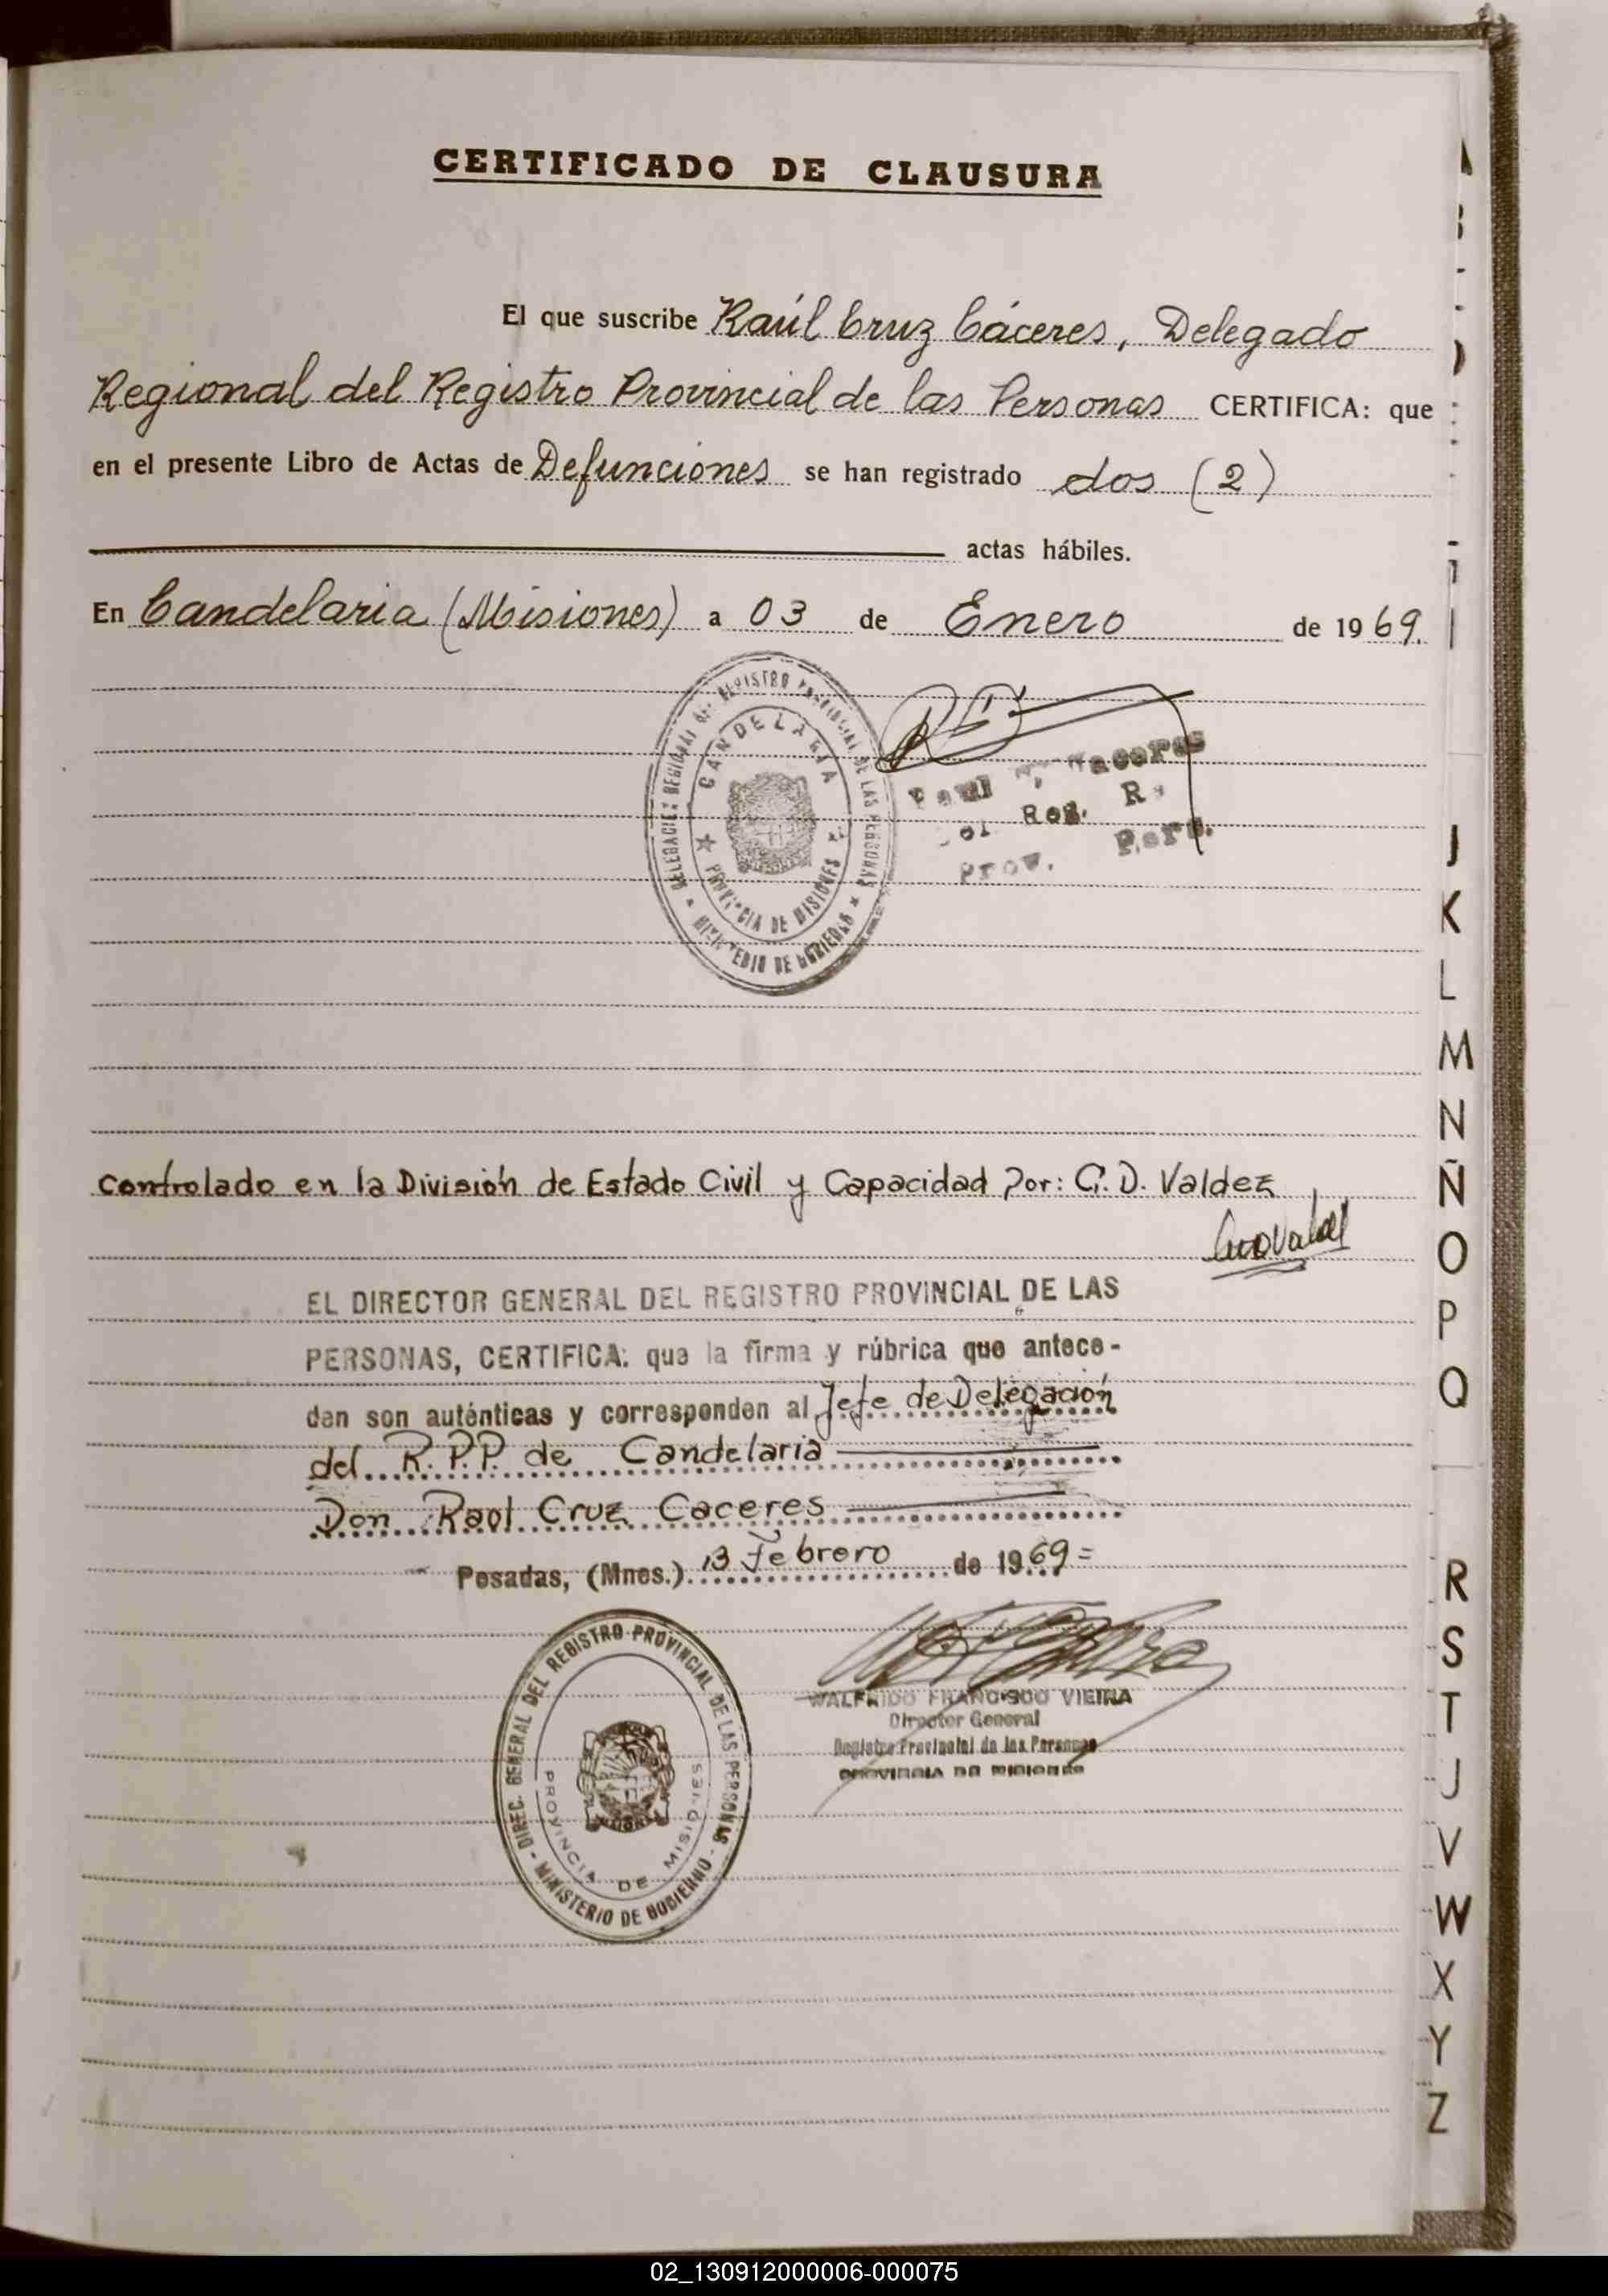 CERTIFICADO DE CLAUSURA
El que suscribe Raúl Cruz Cáceres, Delegado
Regional del Registro Provincial de las Personas CERTIFICA: que
en el presente Libro de Actas de Defunciones se han registrado dos (2)
actas hábiles.
En Candelaria (Misiones) a 03 de Enero de 1969.
DELEGACION REGIONAL DEL REGISTRO PROVINCIAL DE LAS PERSONAS
MINISTERIO DE GOBIERNO
CANDELARIA
PROVINCIA DE MISIONES
Raul Caceres
Reg.
Prov. Pers.
Controlado en la División de Estado Civil y Capacidad Por: G. D. Valdez
EL DIRECTOR GENERAL DEL REGISTRO PROVINCIAL DE LAS
PERSONAS, CERTIFICA: que la firma y rúbrica que antece-
den son auténticas y corresponden al Jefe de Delegación
del R.P.P. de Candelaria
Don Raol Cruz Caceres
Posadas, (Mnes.) 13 Febrero de 1969=
DIREC. GENERAL DEL REGISTRO PROVINCIAL DE LAS PERSONAS
- MINISTERIO DE GOBIERNO -
PROVINCIA DE MISIONES
WALFRIDO FRANCISCO VIEIRA
Director General
Registro Provincial de las Personas
PROVINCIA DE MISIONES
J
K
L
M
N
Ñ
O
P
Q
R
S
T
J
V
W
X
Y
Z
02_130912000006-000075